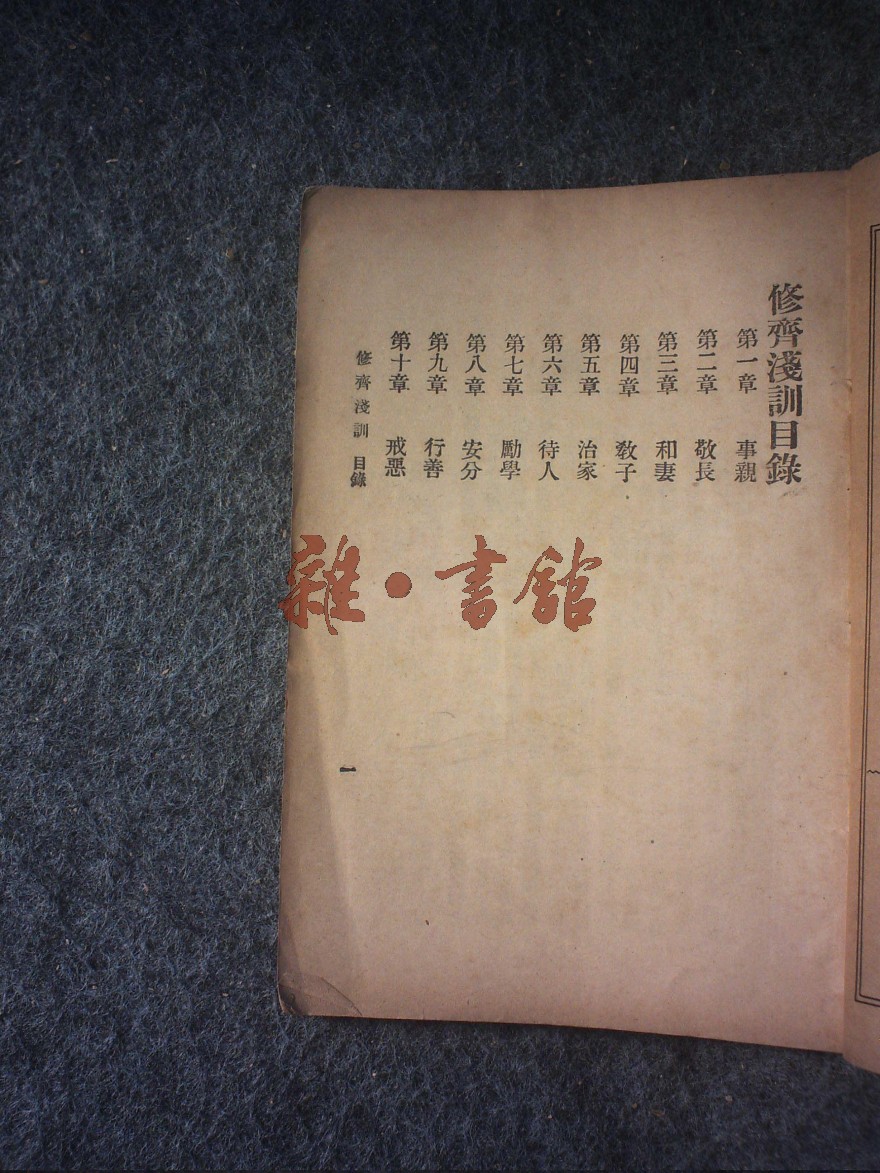 修齊淺訓目錄
第一章 事親
第二章 敬長
第三章 和妻
第四章 教子
第五章 治家
第六章 待人
第七章 勵學
第八章 安分
第九章 行善
第十章 戒惡
修齊淺訓 目錄
一
雜·書館